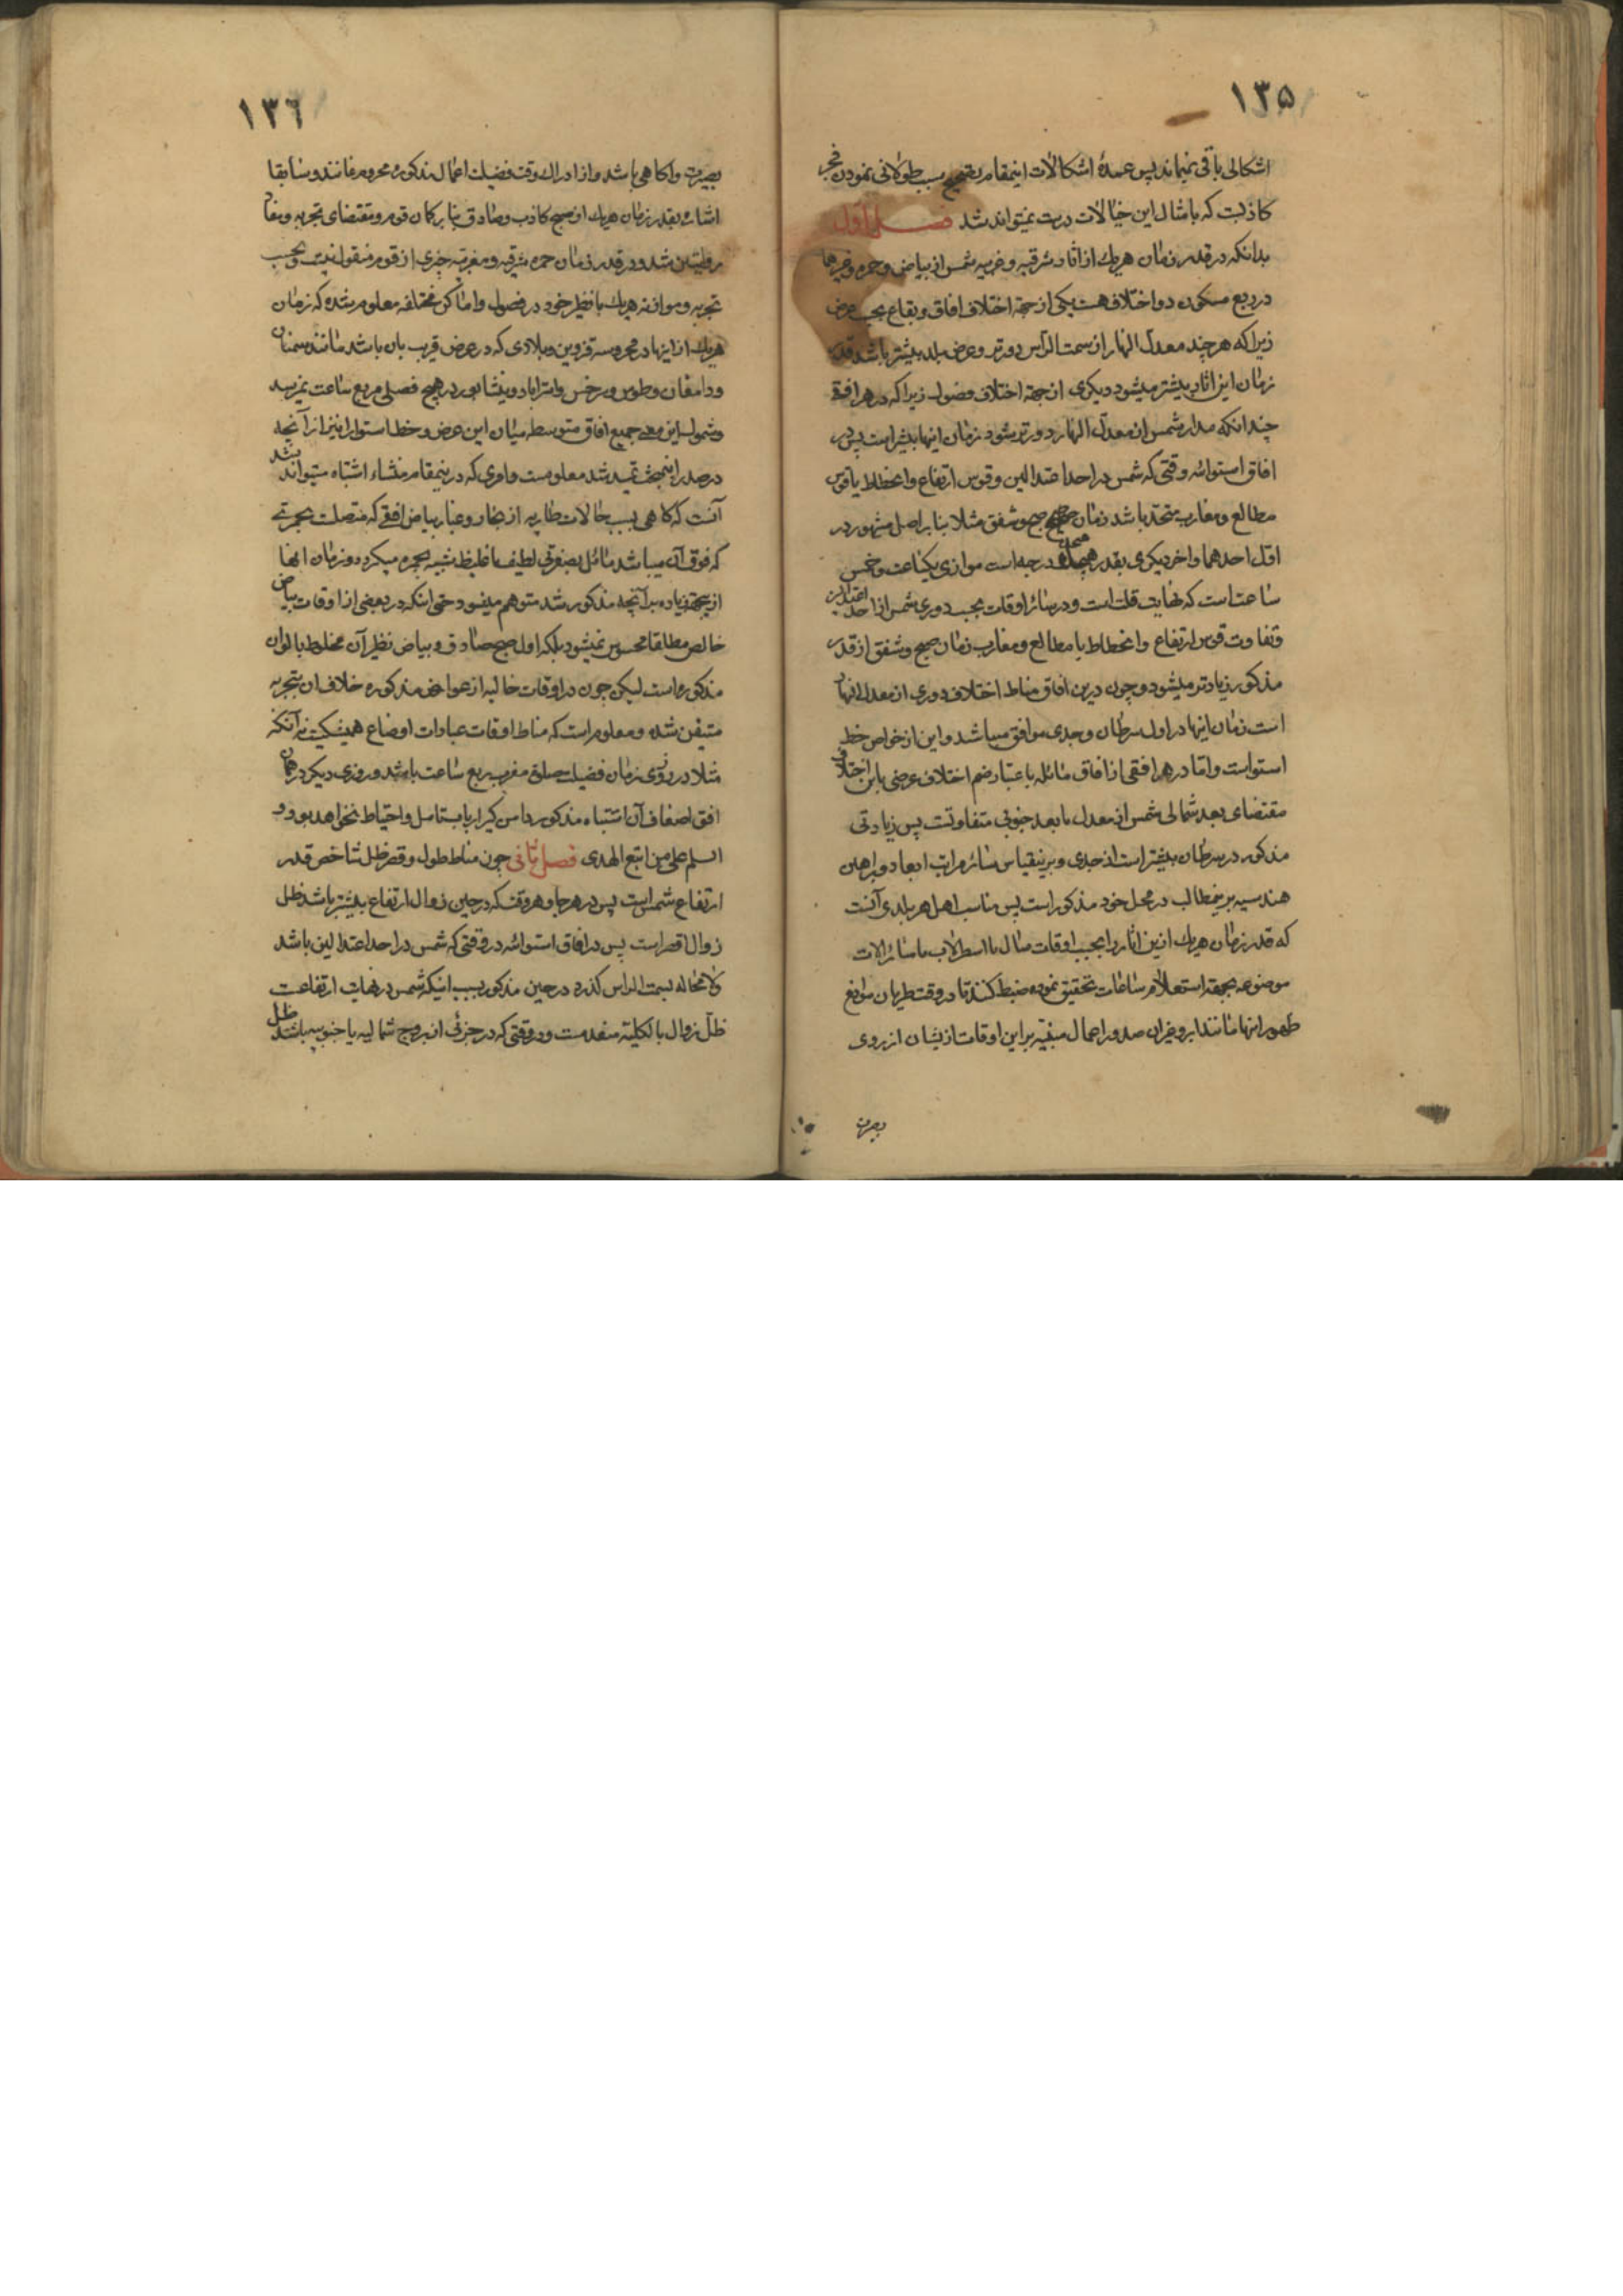 ۱۳۵
اشکالی باقی نمیماند پس عمدهٔ اشکالات اینمقام بتصحیح سبب طولانی نمودن فجر
کاذبست که بامثال این خیالات درست نمیتواند شد فصل اول
بدانکه در قدر زمان هریك از اثار شرقیه و غربیه شمس از بیاض و حمره و غیرهما
در ربع مسکون دو اختلاف هست یکی از جهة اختلاف افاق و بقاع بحسب عرض
زیرا که هر چند معدل النهار از سمت الرأس دورتر و عرض بلد بیشتر باشد قدر
زمان این اثار بیشتر میشود دیکری از جهة اختلاف فصول زیرا که در هر افقی
چندانکه مدار شمس از معدل النهار دورتر شود زمان اینها بیشتر است پس در
افاق استوائیه وقتی که شمس در احد اعتدالین و قوس ارتفاع و انحطاط با قوس
مطالع و مغارب متحد باشد زمان صبح و شفق مثلا بنا بر اصل مشهور در
اول احدهما و اخر دیکری بقدر هیجده درجه است موازی یکساعت و خمس
ساعت است که نهایت قلت است و در سائر اوقات بحسب دوری شمس از احد اعتدالین
و تفاوت قوس ارتفاع و انحطاط با مطالع و مغارب زمان صبح و شفق از قدر
مذکور زیادتر میشود و چون درین افاق مناط اختلاف دوری از معدل النهار
است زمان اینها در اول سرطان و جدی موافق میباشد و این از خواص خط
استواست و اما در هر افقی از افاق مائله باعتبار ضم اختلاف عرضی باین اختلاف
مقتضای بعد شمالی شمس از معدل با بعد جنوبی متفاوتست پس زیادتی
مذکور در سرطان بیشتر است از جدی و برینقیاس سائر مراتب ابعاد و براهین
هندسیه برینمطالب در محل خود مذکور است پس مناسب اهل هر بلدی آنست
که قدر زمان هریك ازین اثار را بحسب اوقات سال با اسطرلاب یا سائر الات
موضوعه بجهة استعلام ساعات تحقیق نموده ضبط کنند تا در وقت طریان موانع
ظهور اینها مانند ابر و غیران صدور اعمال مبتنیه بر این اوقات ازیشان از روی
بصیرت
۱۳۶
بصیرت و اکاهی باشد و از ادراك وقت فضیلت اعمال مذکوره محروم نمانند و سابقا
اشاره بقدر زمان هریك از صبح کاذب و صادق بنا بر کمان قوم و مقتضای تجربه و مفاد
روایتین شد و در قدر زمان حمره شرقیه و مغربیه چیزی از قوم منقول نیست و بحسب
تجربه و موازنه هریك با نظیر خود در فصول و اماکن مختلفه معلوم شده که زمان
هریك از اینها در محروسه قزوین و بلادی که در عرض قریب بان باشد مانند سمنان
و دامغان و طوس و سرخس و استراباد و نیشابور در هیچ فصلی بربع ساعت نمیرسد
و شمول این معنی جمیع افاق متوسطه میان این عرض و خط استوا را نیز از آنچه
در صدر اینمبحث تمهید شد معلومست و امری که درینمقام منشاء اشتباه میتواند شد
آنست که کاهی بسبب حالات طاریه از بخار و غبار بیاض افقی که متصلست بحمرتی
که فوق آن میباشد مائل بصفرتی لطیف یا غلیظ شبیه بحمره میکردد و زمان انها
ازینجهة زیاده بر آنچه مذکور شد متوهم میشود حتی انکه در بعضی از اوقات بیاض
خالص مطلقا محسوس نمیشود بلکه اول صبح صادق و بیاض نظیر آن مخلوط بالوان
مذکوره است لیکن چون در اوقات خالیه از عوارض مذکوره خلاف ان بتجربه
متیقن شده و معلوم است که مناط اوقات عبادات اوضاع همیشکیست نه آنکه
مثلا در روزی زمان فضیلت صلوة مغرب ربع ساعت باشد و روزی دیکر در همان
افق اضعاف آن اشتباه مذکور دامن کیر ارباب تامل و احتیاط نخواهد بود و
السلم علی من اتبع الهدی فصل ثانی چون مناط طول و قصر ظل شاخص قدر
ارتفاع شمس است پس در هر جا و هر وقت که در حین زوال ارتفاع بیشتر باشد ظل
زوال اقصر است پس در افاق استوائیه در وقتی که شمس در احد اعتدالین باشد
لامحاله بسمت الراس کذرد در حین مذکور بسبب اینکه شمس در نهایت ارتفاعست
ظل زوال بالکلیة منعدمست و در وقتی که در جزئی از بروج شمالیه یا جنوبیه باشد ظل